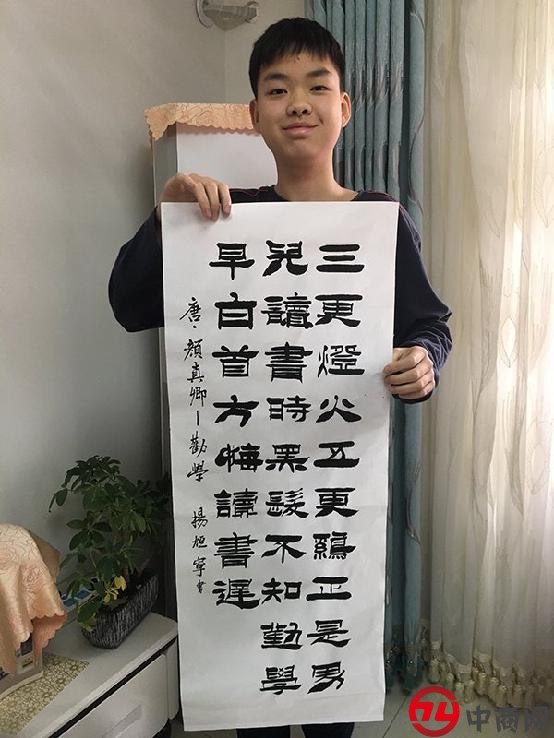 三更燈火五更鷄正是男
兒讀書時黑髮不知勤學
早白首方悔讀書遲
唐、顏真卿—勸學 寧書
中商网